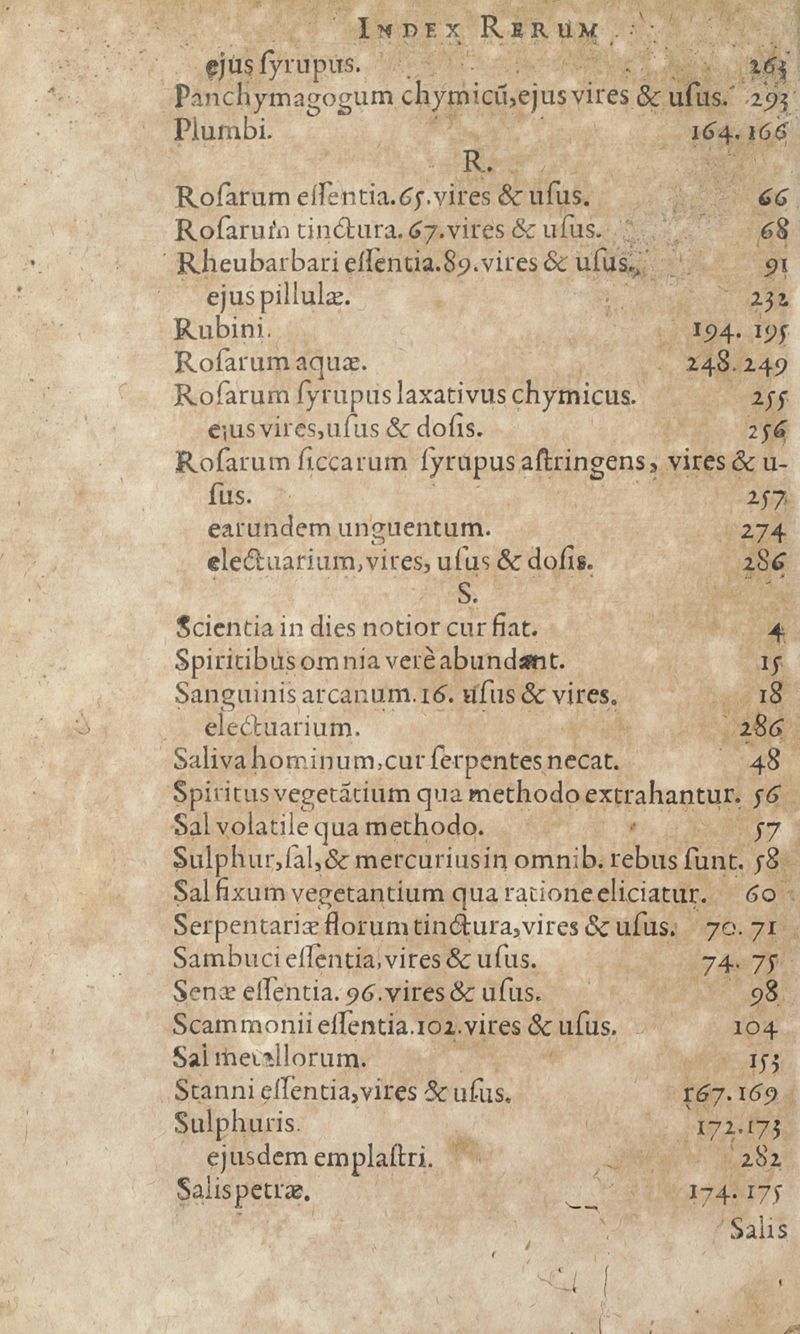 INDEX RERUM
ejus ſyrupus. 263
Panchymagogum chymicũ,ejus vires & uſus. 293
Plumbi. 164. 166
R.
Roſarum eſſentia.65.vires & uſus. 66
Roſarum tinctura. 67.vires & uſus. 68
Rheubarbari eſſentia.89.vires & uſus. 91
ejus pillulæ. 232
Rubini. 194. 195
Roſarum aquæ. 248. 249
Roſarum ſyrupus laxativus chymicus. 255
ejus vires,uſus & doſis. 256
Roſarum ſiccarum ſyrupus aſtringens, vires & u-
ſus. 257
earundem unguentum. 274
electuarium,vires, uſus & doſis. 286
S.
Scientia in dies notior cur fiat. 4
Spiritibus omnia verè abundant. 15
Sanguinis arcanum.16. uſus & vires. 18
electuarium. 286
Saliva hominum,cur ſerpentes necat. 48
Spiritus vegetãtium qua methodo extrahantur. 56
Sal volatile qua methodo. 57
Sulphur,ſal,& mercurius in omnib. rebus ſunt. 58
Sal fixum vegetantium qua ratione eliciatur. 60
Serpentariæ florum tinctura,vires & uſus. 70. 71
Sambuci eſſentia,vires & uſus. 74. 75
Senæ eſſentia. 96.vires & uſus. 98
Scammonii eſſentia.102.vires & uſus. 104
Sal metallorum. 153
Stanni eſſentia,vires & uſus. 167. 169
Sulphuris. 172.173
ejusdem emplaſtri. 282
Salis petræ. 174. 175
Salis